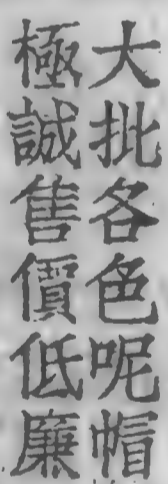 大批各色呢帽
極誠售價低廉